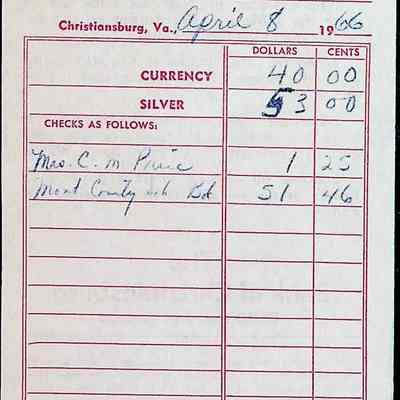 Christiansburg, Va., April 8 1966
DOLLARS CENTS
CURRENCY 40 00
SILVER 53 00
CHECKS AS FOLLOWS:
Mrs. C. M 1 25
Mont County Bd 51 46